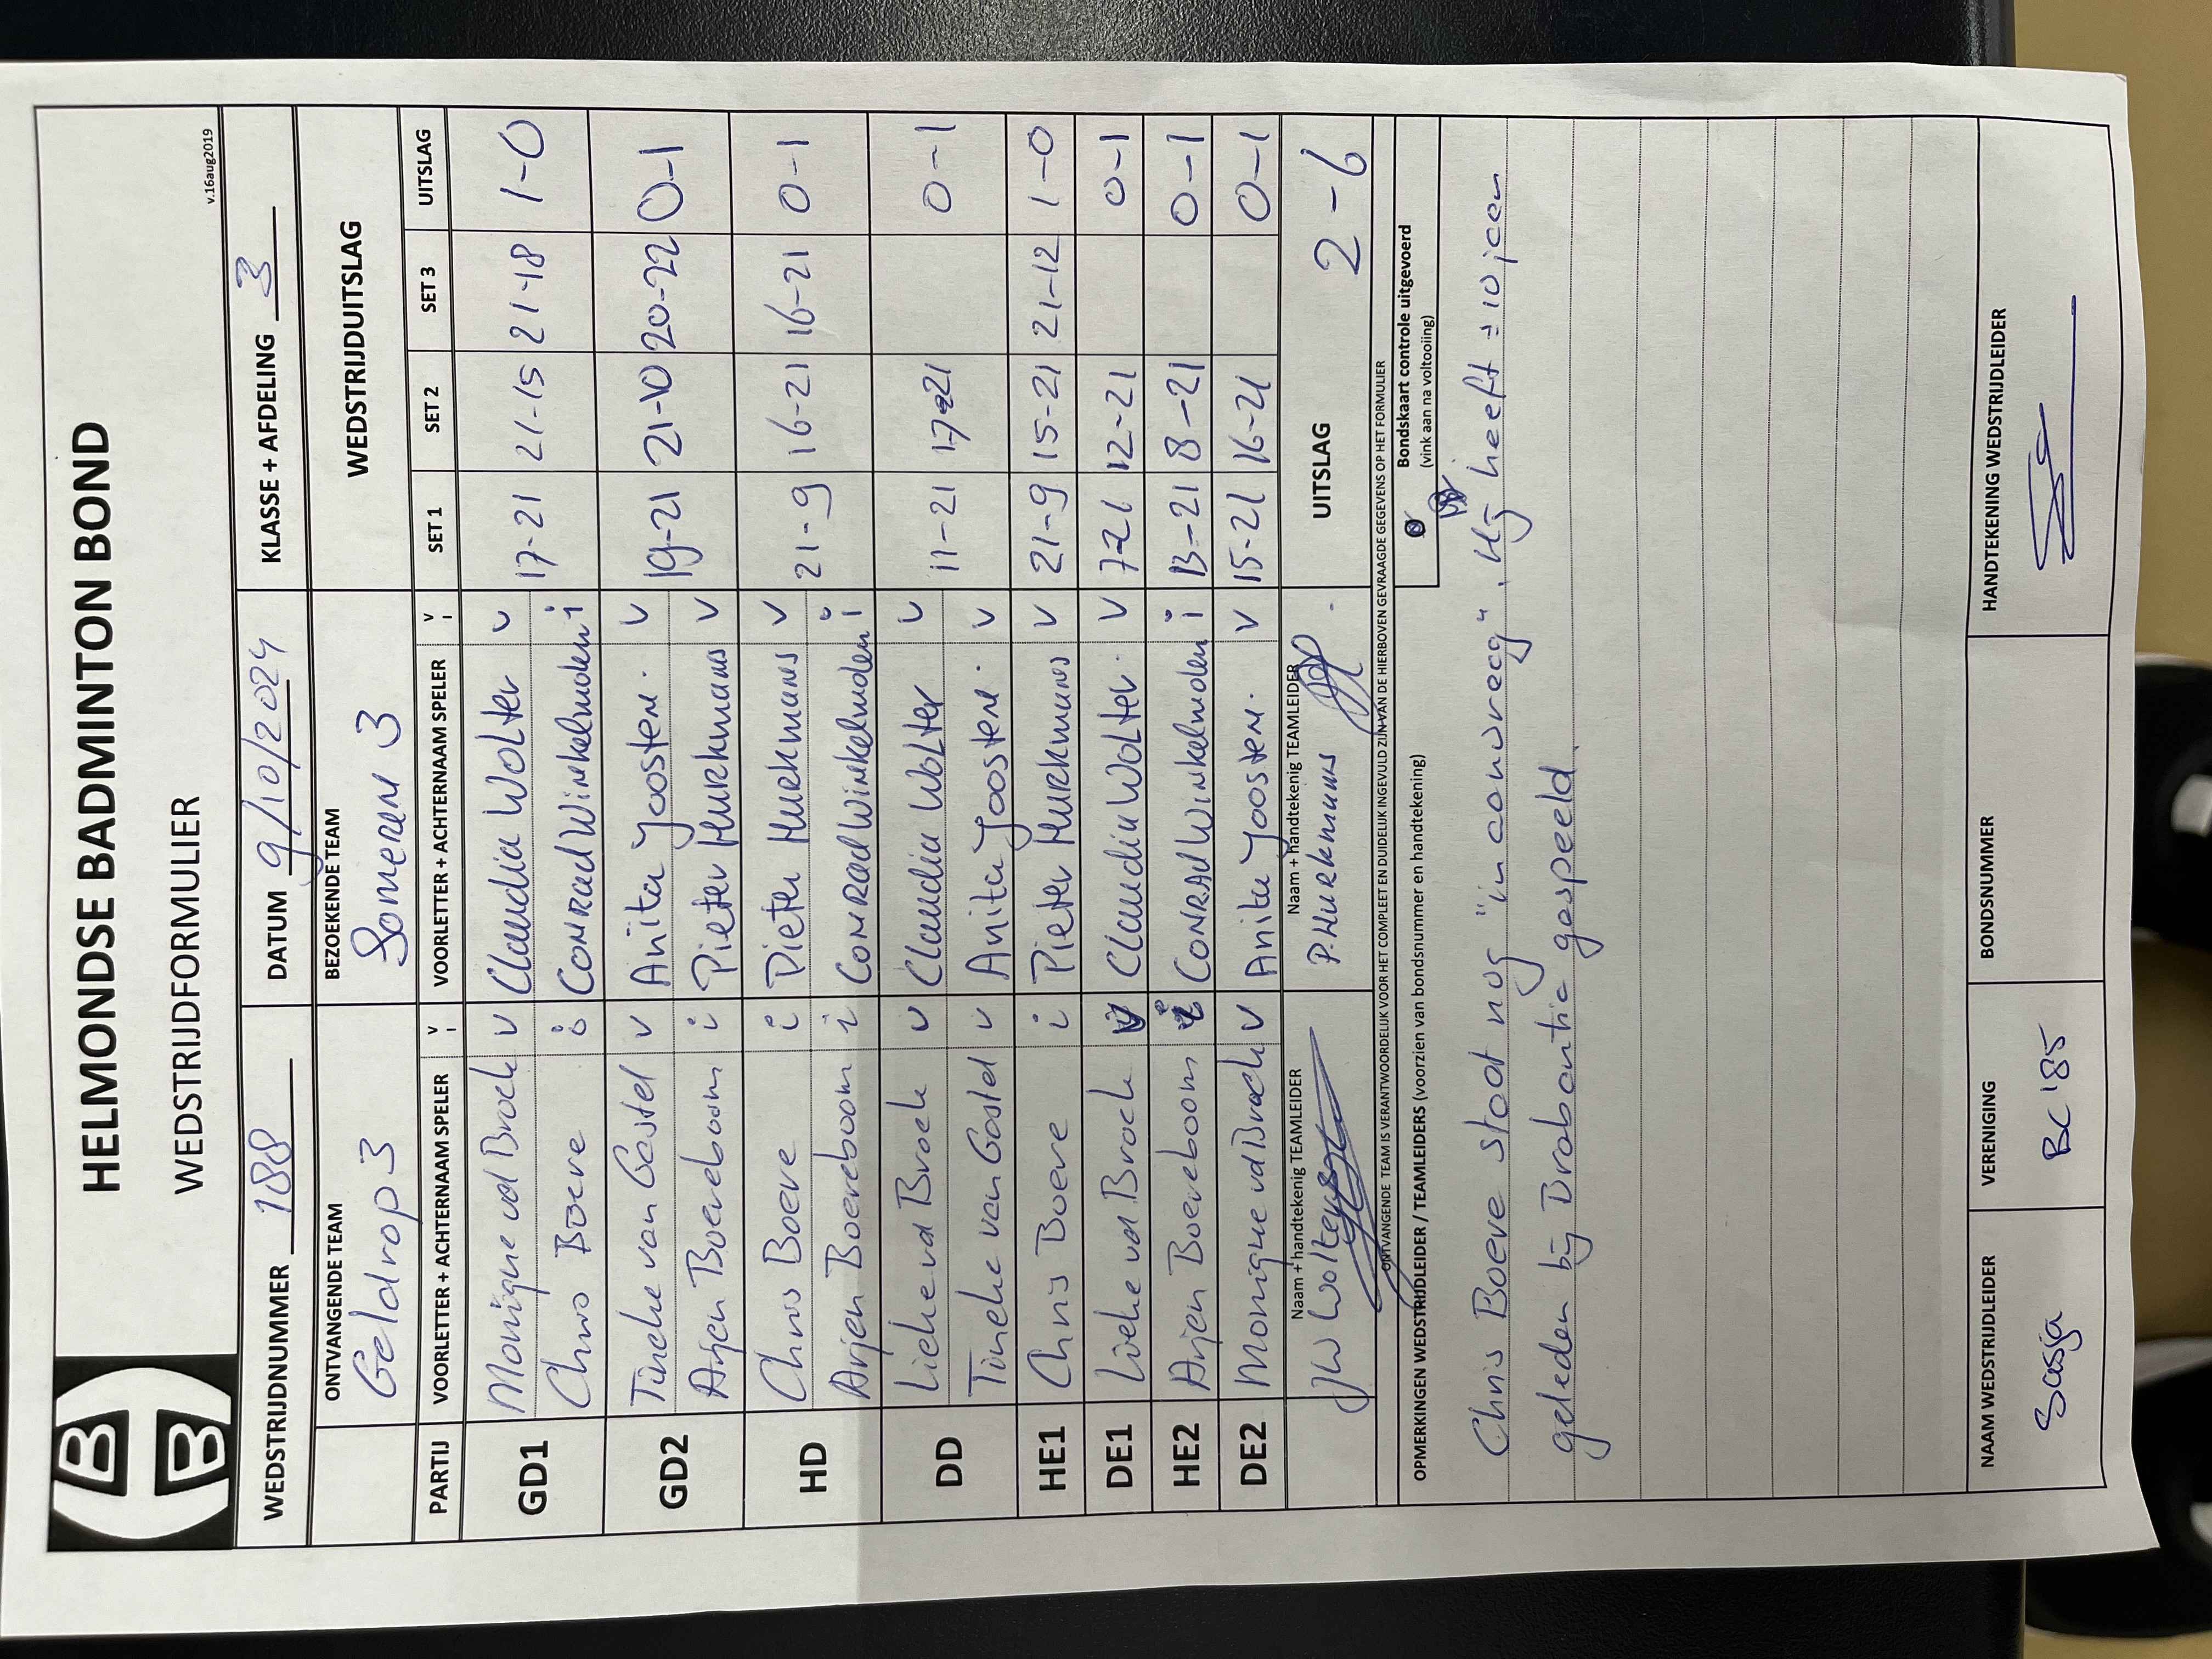 HELMONDSE BADMINTON BOND
WEDSTRIJDFORMULIER
v.16aug2019
WEDSTRIJDNUMMER 188 DATUM 9/10/2024 KLASSE + AFDELING 3
ONTVANGENDE TEAM BEZOEKENDE TEAM WEDSTRIJDUITSLAG
Geldrop 3 Someren 3
PARTIJ VOORLETTER + ACHTERNAAM SPELER V I VOORLETTER + ACHTERNAAM SPELER V I SET 1 SET 2 SET 3 UITSLAG
GD1 Monique vd Broek v Claudia Wolter v 17-21 21-15 21-18 1-0
Chris Boeve i Conrad Winkelmolen i
GD2 Tineke van Gastel v Anita Joosten. v 19-21 21-10 20-22 0-1
Arjen Boereboom i Pieter Hurkmans v
HD Chris Boeve i Pieter Hurkmans v 21-9 16-21 16-21 0-1
Arjen Boereboom i Conrad Winkelmolen i
DD Lieke vd Broek v Claudia Wolter v 11-21 17-21 0-1
Tineke van Gastel v Anita Joosten. v
HE1 Chris Boeve i Pieter Hurkmans v 21-9 15-21 21-12 1-0
DE1 Lieke vd Broek v Claudia Wolter. v 7-21 12-21 0-1
HE2 Arjen Boereboom i Conrad Winkelmolen i 13-21 8-21 0-1
DE2 Monique vd Broek v Anita Joosten. v 15-21 16-21 0-1
Naam + handtekenig TEAMLEIDER Naam + handtekenig TEAMLEIDER UITSLAG 2-6
JW P. Hurkmans
ONTVANGENDE TEAM IS VERANTWOORDELIJK VOOR HET COMPLEET EN DUIDELIJK INGEVULD ZIJN VAN DE HIERBOVEN GEVRAAGDE GEGEVENS OP HET FORMULIER
OPMERKINGEN WEDSTRIJDLEIDER / TEAMLEIDERS (voorzien van bondsnummer en handtekening)
Bondskaart controle uitgevoerd
(vink aan na voltooiing)
Chris Boeve staat nog "in aanvraag". Hij heeft ± 10 jaar
geleden bij Brabantia gespeeld.
NAAM WEDSTRIJDLEIDER VERENIGING BONDSNUMMER HANDTEKENING WEDSTRIJDLEIDER
Sasja BC'85